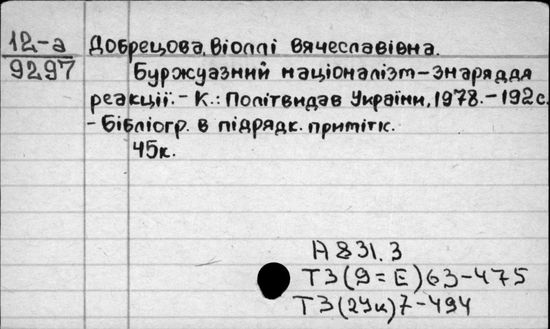 12-а
9297
Добрецова, Віоллі Вячеславівна.
Буржуазний націоналізм-знаряддя
реакції. - К.: Політвидав України, 1978. - 192с.
- Бібліогр. в підрядк. приміт.
45к.
А 831.3
Т3(9=Е)63-475
Т3(2Ук)7-494